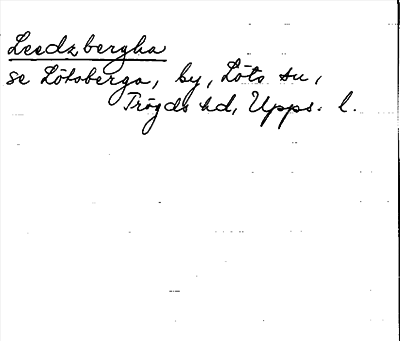 Leedzbergha
se Lötsberga, by, Löts sn,
Trögds hd, Upps. l.